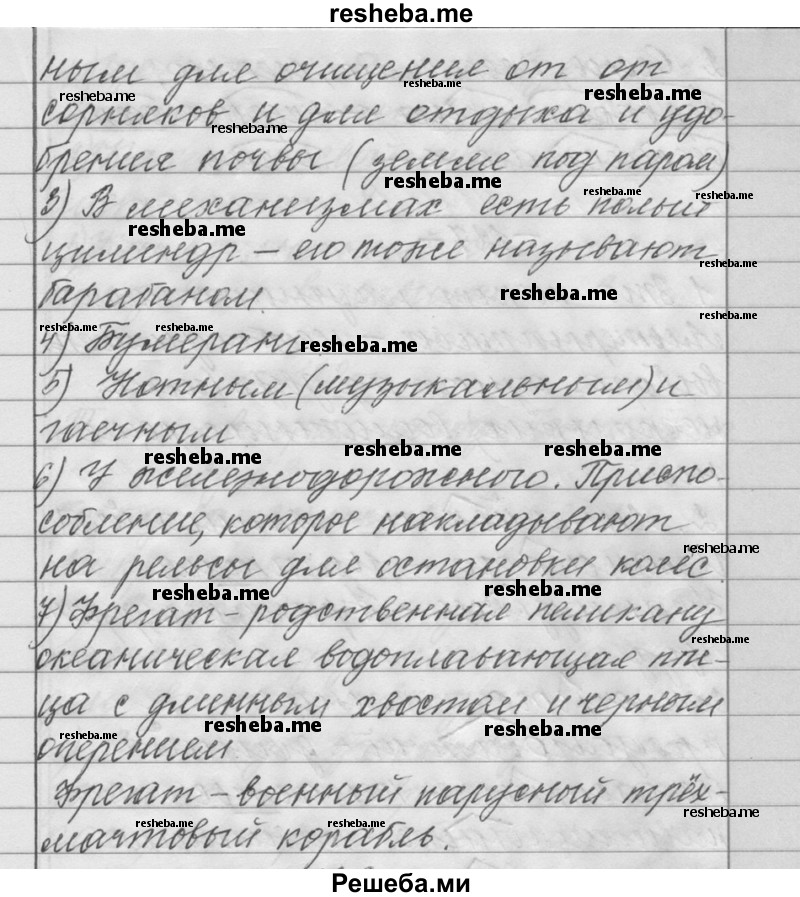 resheba.me
ным для очищения от от
resheba.me
resheba.me resheba.me
сорняков и для отдыха и удо-
resheba.me
брения почвы (земля под паром)
resheba.me
resheba.me resheba.me
3) В механизмах есть полый
resheba.me
цилиндр – его тоже называют
resheba.me
барабаном.
resheba.me
resheba.me
resheba.me resheba.me
4) Бумеранг
resheba.me
5) Нотным (музыкальным) и
гаечным
resheba.me resheba.me resheba.me
6) У железнодорожного. Приспо-
собление, которое накладывают
resheba.me
на рельсы для остановки колёс
resheba.me resheba.me
7) Фрегат – родственная пеликану
resheba.me
океаническая водоплавающая пти-
ца с длинным хвостом и черным
resheba.me resheba.me resheba.me
оперением
Фрегат – военный парусный трёх-
resheba.me
resheba.me resheba.me
мачтовый корабль.
Решеба.ми